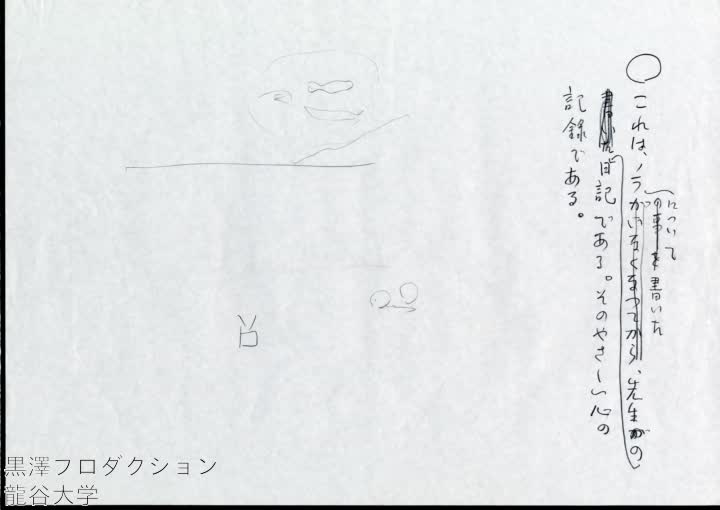 ○これは、ノラがいなくなつてから、先生がの
について
の事を書いた
書いた日記である。そのやさしい心の
記録である。
黒澤フロダクション
龍谷大学